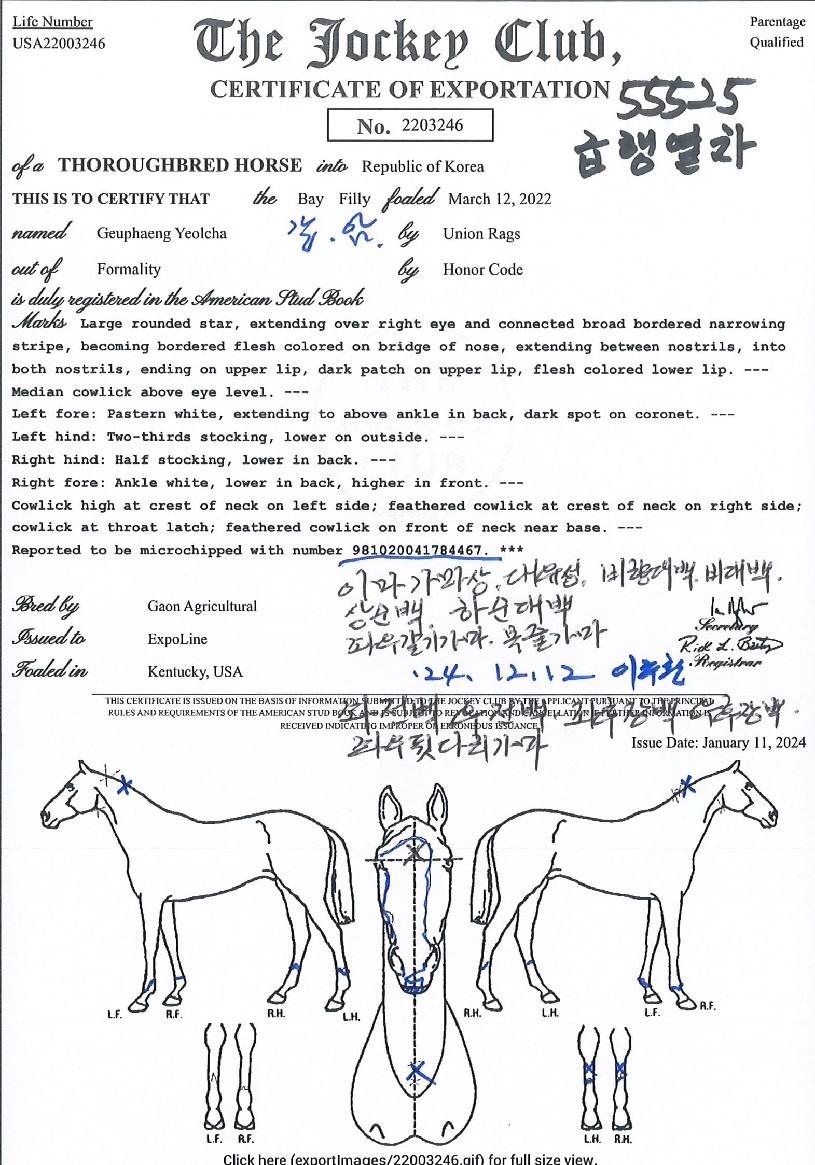 Life Number
USA22003246
The Jockey Club,
Parentage
Qualified
CERTIFICATE OF EXPORTATION
55525
No. 2203246
급행열차
of a THOROUGHBRED HORSE into Republic of Korea
THIS IS TO CERTIFY THAT the Bay Filly foaled March 12, 2022
named Geuphaeng Yeolcha by Union Rags
out of Formality by Honor Code
is duly registered in the American Stud Book
Marks Large rounded star, extending over right eye and connected broad bordered narrowing
stripe, becoming bordered flesh colored on bridge of nose, extending between nostrils, into
both nostrils, ending on upper lip, dark patch on upper lip, flesh colored lower lip. ---
Median cowlick above eye level. ---
Left fore: Pastern white, extending to above ankle in back, dark spot on coronet. ---
Left hind: Two-thirds stocking, lower on outside. ---
Right hind: Half stocking, lower in back. ---
Right fore: Ankle white, lower in back, higher in front. ---
Cowlick high at crest of neck on left side; feathered cowlick at crest of neck on right side;
cowlick at throat latch; feathered cowlick on front of neck near base. ---
Reported to be microchipped with number 981020041784467. ***
이마가마상. 대유성. 비대백.
Bred by Gaon Agricultural
상순백 하순대백
Secretary
Issued to ExpoLine
좌우갈기가마. 목줄가마
Registrar
Foaled in Kentucky, USA
'24. 12. 12
THIS CERTIFICATE IS ISSUED ON THE BASIS OF INFORMATION SUBMITTED TO THE JOCKEY CLUB BY THE APPLICANT PURSUANT TO THE PRINCIPAL
RULES AND REQUIREMENTS OF THE AMERICAN STUD BOOK AND IS SUBJECT TO REVOCATION AND CANCELLATION IF FURTHER INFORMATION IS
RECEIVED INDICATING IMPROPER OR ERRONEOUS ISSUANCE.
좌우뒷다리가마
Issue Date: January 11, 2024
L.F. R.F. R.H. L.H. R.H. L.H. L.F. R.F.
L.F. R.F. L.H. R.H.
Click here (exportImages/22003246.gif) for full size view.